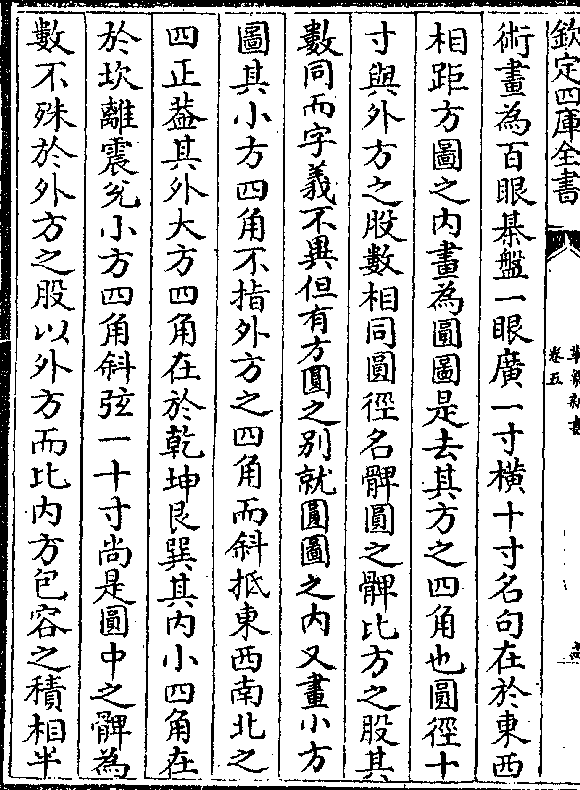 欽定四庫全書
卷五
術畫為百眼棊盤一眼廣一寸橫十寸名句在於東西
相距方圖之内畫為圓圖是去其方之四角也圓徑十
寸與外方之股數相同圓徑名髀圓之髀比方之股其
數同而字義不異但有方圓之别就圓圖之内又畫小方
圖其小方四角不指外方之四角而斜抵東西南北之
四正葢其外大方四角在於乾坤艮巽其内小四角在
於坎離震兊小方四角斜弦一十寸尚是圓中之髀為
數不殊於外方之股以外方而比内方包容之積相半